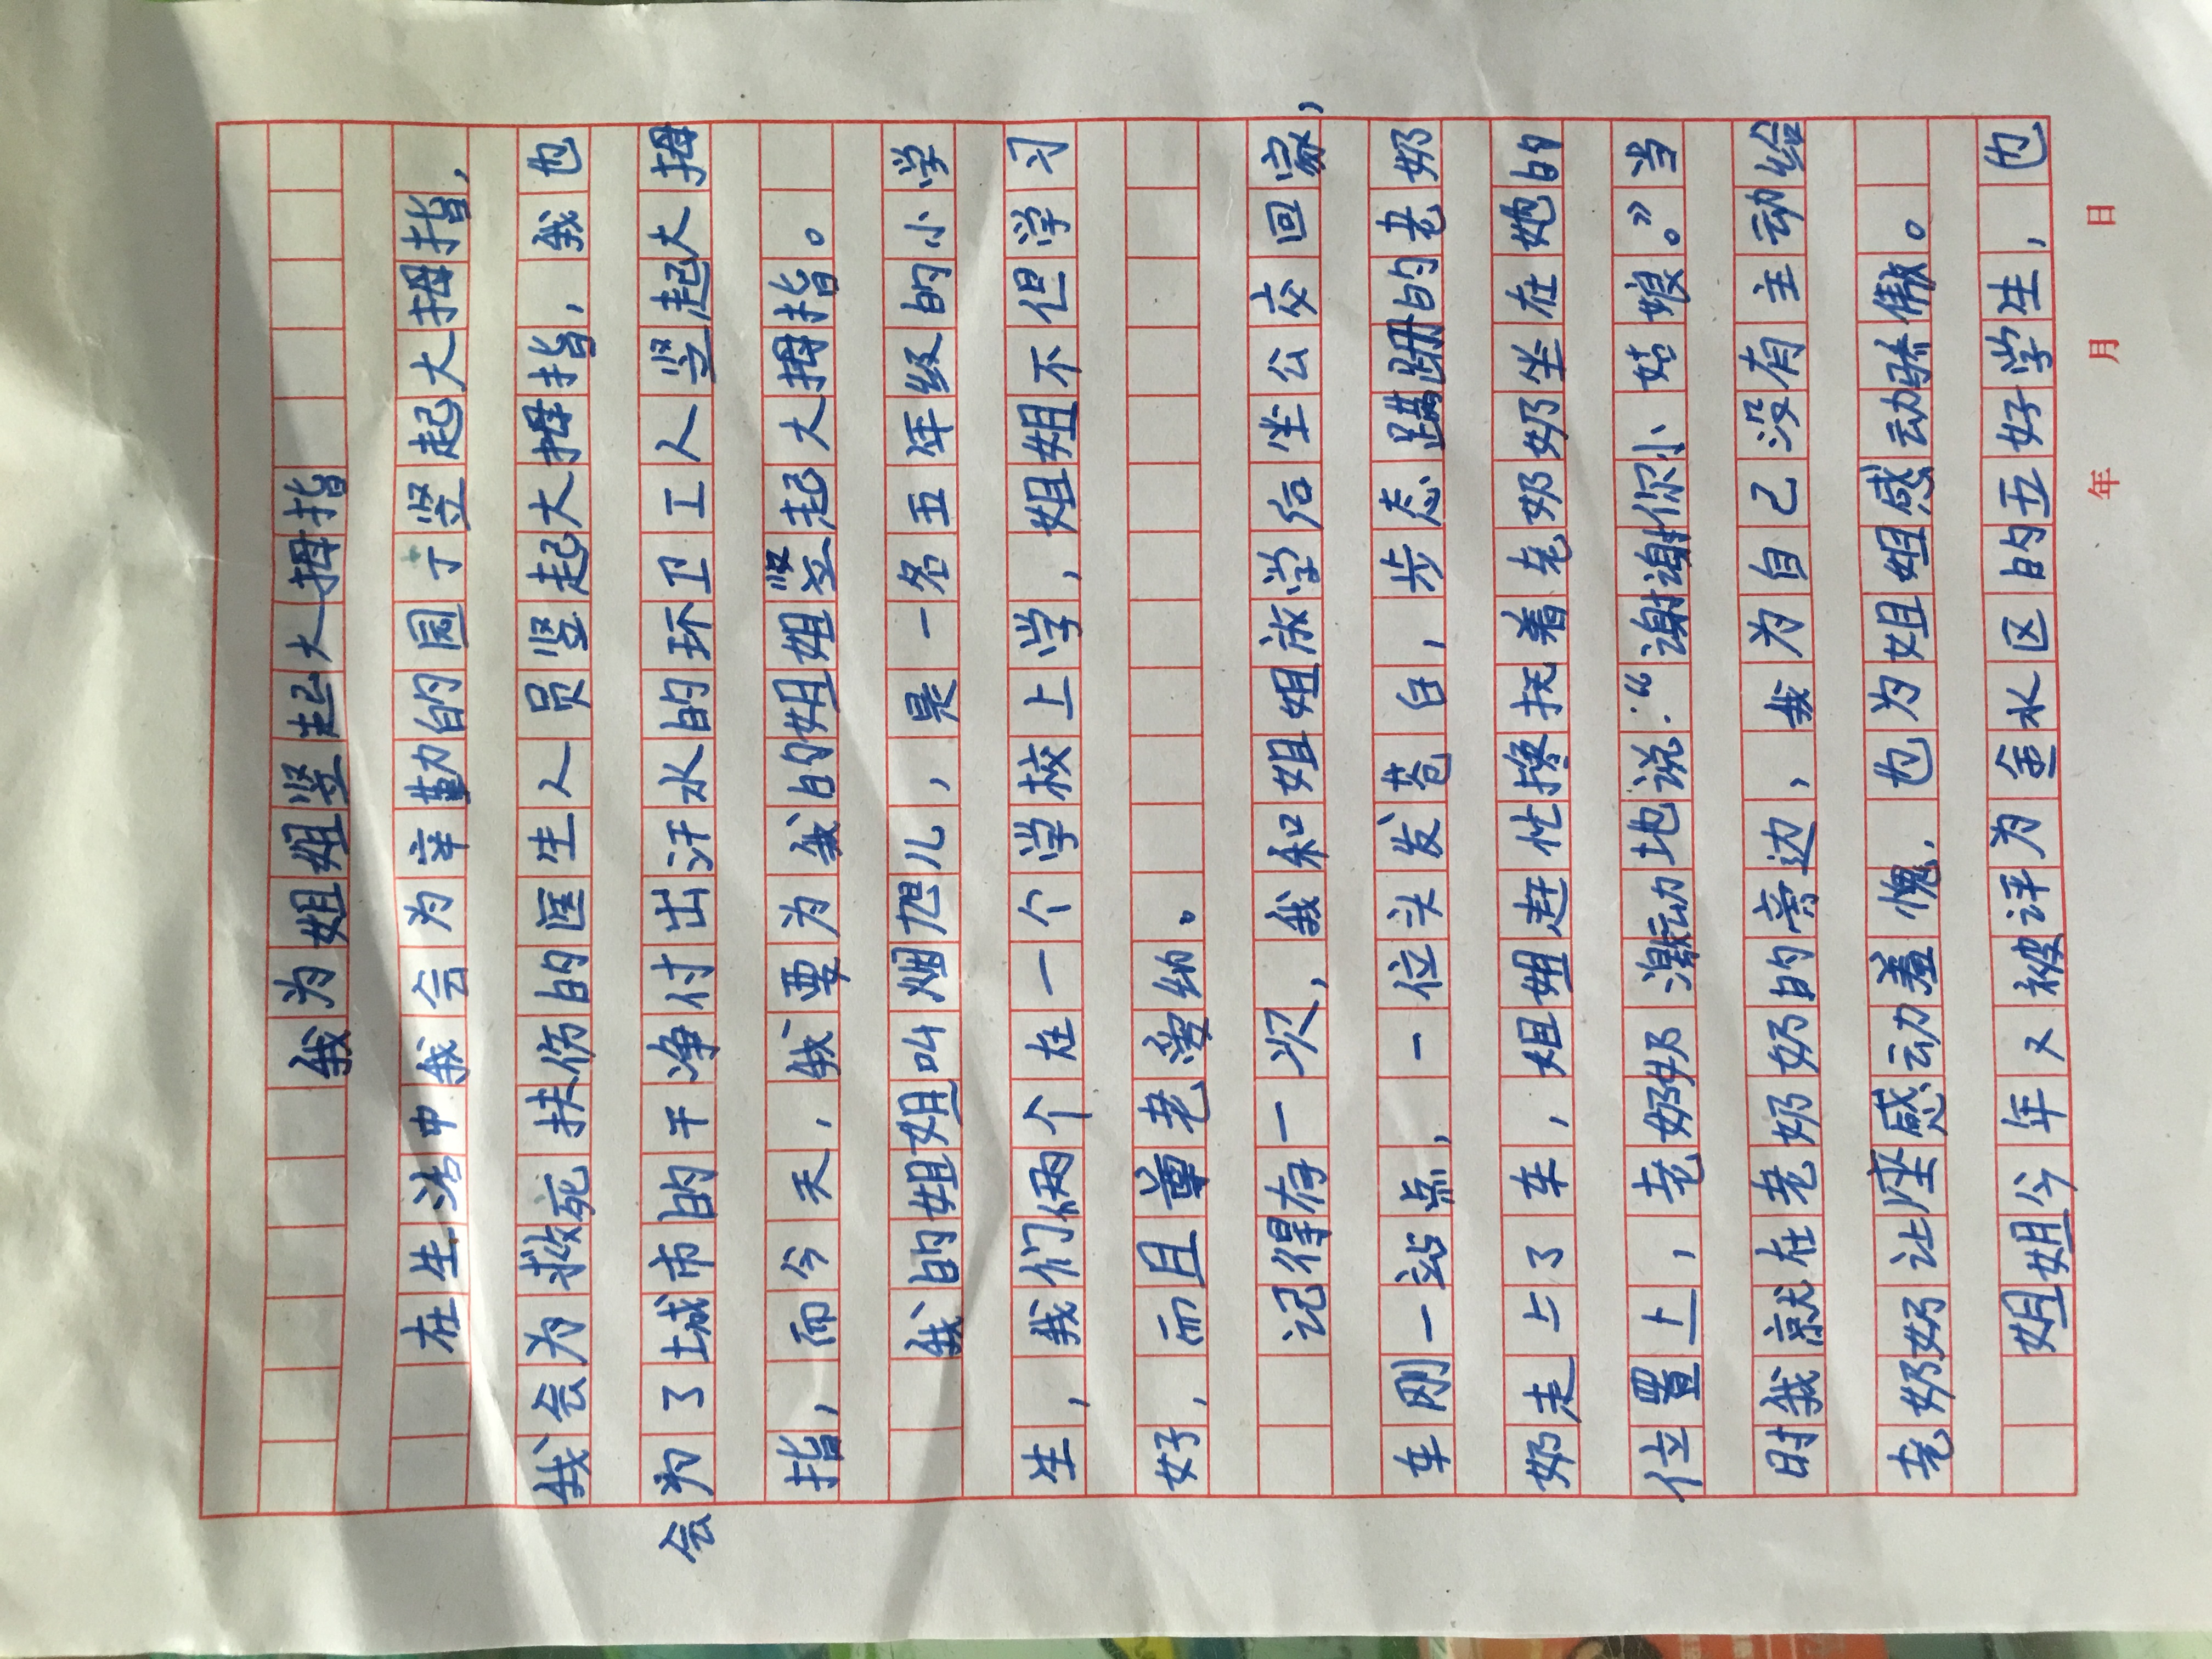 我为姐姐竖起大拇指
在生活中我会为辛勤的园丁竖起大拇指，
我会为救死扶伤的医生人员竖起大拇指，我也
会为了城市的干净付出汗水的环卫工人竖起大拇
指，而今天，我要为我的姐姐竖起大拇指。
我的姐姐叫烟旭儿，是一名五年级的小学
生，我们俩个在一个学校上学，姐姐不但学习
好，而且尊老爱幼。
记得有一次，我和姐姐放学后坐公交回家，
车刚一站点，一位头发苍白，步态蹒跚的老奶
奶走上了车，姐姐赶忙搀扶着老奶奶坐在她的
位置上，老奶奶激动地说：“谢谢你小姑娘。”当
时我就在老奶奶的旁边，我为自己没有主动给
老奶奶让座感动羞愧，也为姐姐感动骄傲。
姐姐今年又被评为金水区的五好学生，也
年 月 日